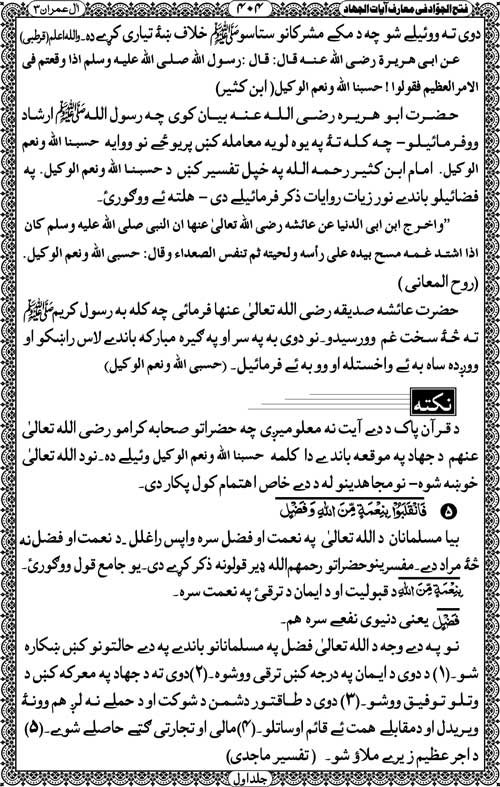 فتح الجوّاد فی معارف آیات الجهاد
۴۰۴
آل عمران ۳
دوی ته وویلے شو چه د مکے مشرکانو ستاسو ﷺ خلاف ښۀ تیاری کړے ده۔ والله اعلم (قرطبی)
عن ابی هریرة رضی الله عنه قال: قال :رسول الله صلی الله علیه وسلم اذا وقعتم فی
الامر العظیم فقولوا ! حسبنا الله ونعم الوکیل (ابن کثیر)
حضرت ابو هریره رضی الله عنه بیان کوی چه رسول الله ﷺ ارشاد
ووفرمائیلو- چه کله تۀ په یوه لویه معامله کښ پریوځے نو ووایه حسبنا الله ونعم
الوکیل. امام ابن کثیر رحمه الله په خپل تفسیر کښ د حسبنا الله ونعم الوکیل. په
فضائیلو باندے نور زیات روایات ذکر فرمائیلے دی - هلته ئے ووګورئ.
”واخرج ابن ابی الدنیا عن عائشه رضی الله تعالیٰ عنها ان النبی صلی الله علیه وسلم کان
اذا اشتد غمه مسح بیده علی رأسه ولحیته ثم تنفس الصعداء وقال: حسبی الله ونعم الوکیل.
(روح المعانی)
حضرت عائشه صدیقه رضی الله تعالیٰ عنها فرمائی چه کله به رسول کریم ﷺ
ته څۀ سخت غم وورسیدو۔نو دوی به په سر او په ګیره مبارکه باندے لاس راښکو او
وږده ساه به ئے واخستله او وو به ئے فرمائیل۔ (حسبی الله ونعم الوکیل)
نکته
د قرآن پاک د دے آیت نه معلومیږی چه حضراتو صحابه کرامو رضی الله تعالیٰ
عنهم د جهاد په موقعه باندے دا کلمه حسبنا الله ونعم الوکیل وئیلے ده۔نود الله تعالیٰ
خوښه شوه- نو مجاهدینو له د دے خاص اهتمام کول پکار دی.
۵ فَانْقَلَبُوْا بِنِعْمَةٍ مِّنَ اللهِ وَ فَضْلٍ
بیا مسلمانان د الله تعالیٰ په نعمت او فضل سره واپس راغلل۔د نعمت او فضل نه
څۀ مراد دے۔مفسرینو حضراتو رحمهم الله ډیر قولونه ذکر کړے دی۔یو جامع قول ووګورئ۔
بِنِعْمَةٍ مِّنَ اللهِ د قبولیت او د ایمان د ترقئ په نعمت سره۔
فَضْلٍ یعنی دنیوی نفعے سره هم۔
نو په دے وجه د الله تعالیٰ فضل په مسلمانانو باندے په دے حالتونو کښ ښکاره
شو۔(۱) د دوی د ایمان په درجه کښ ترقی ووشوه۔(۲)دوی ته د جهاد په معرکه کښ د
وتلو توفیق ووشو۔(۳) دوی د طاقتور دشمن د شوکت او د حملے نه لږ هم وونۀ
ویریدل او دمقابلے همت ئے قائم اوساتلو۔(۴)مالی او تجارتی ګټے حاصلے شوے۔(۵)
د اجر عظیم زیرے ملاؤ شو۔ (تفسیر ماجدی)
جلد اول